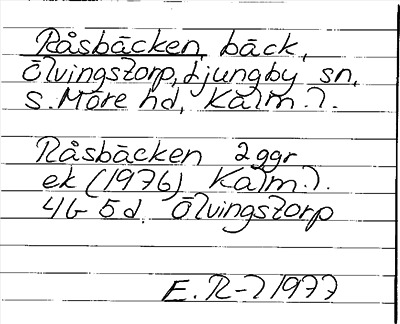 Råsbäcken, bäck,
Ölvingstorp, Ljungby sn,
S. Möre hd, Kalm. l.
Råsbäcken 2 ggr
ek (1976) Kalm. l.
4G 5d. Ölvingstorp
E. R-l 1977